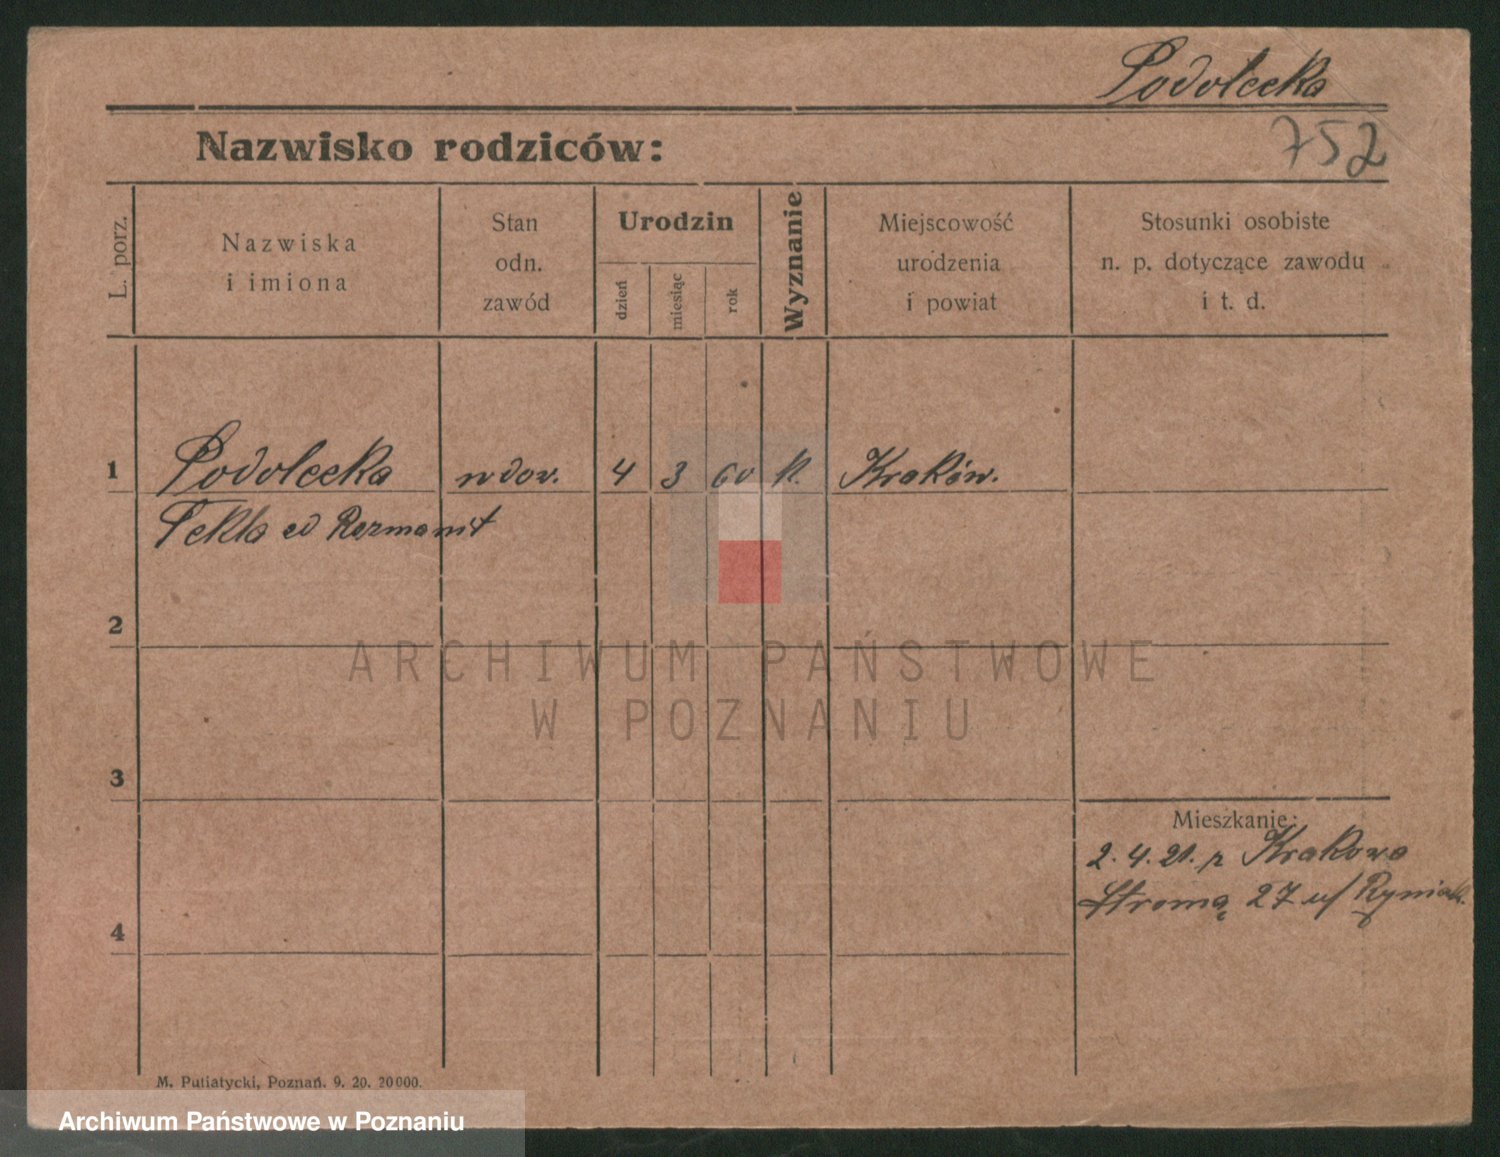 Podolecka
Nazwisko rodziców:
752
L. porz.
Nazwiska
i imiona
Stan
odn.
zawód
Urodzin
dzień
miesiąc
rok
Wyznanie
Miejscowość
urodzenia
i powiat
Stosunki osobiste
n. p. dotyczące zawodu
i t. d.
1 Podolecka wdow. 4 3 60 k. Kraków.
Tekla
2
3
4
Mieszkanie:
2.4.21. z Krakowa
Stromą 27
M. Putiatycki, Poznań. 9. 20. 20000.
ARCHIWUM PAŃSTWOWE
W POZNANIU
Archiwum Państwowe w Poznaniu